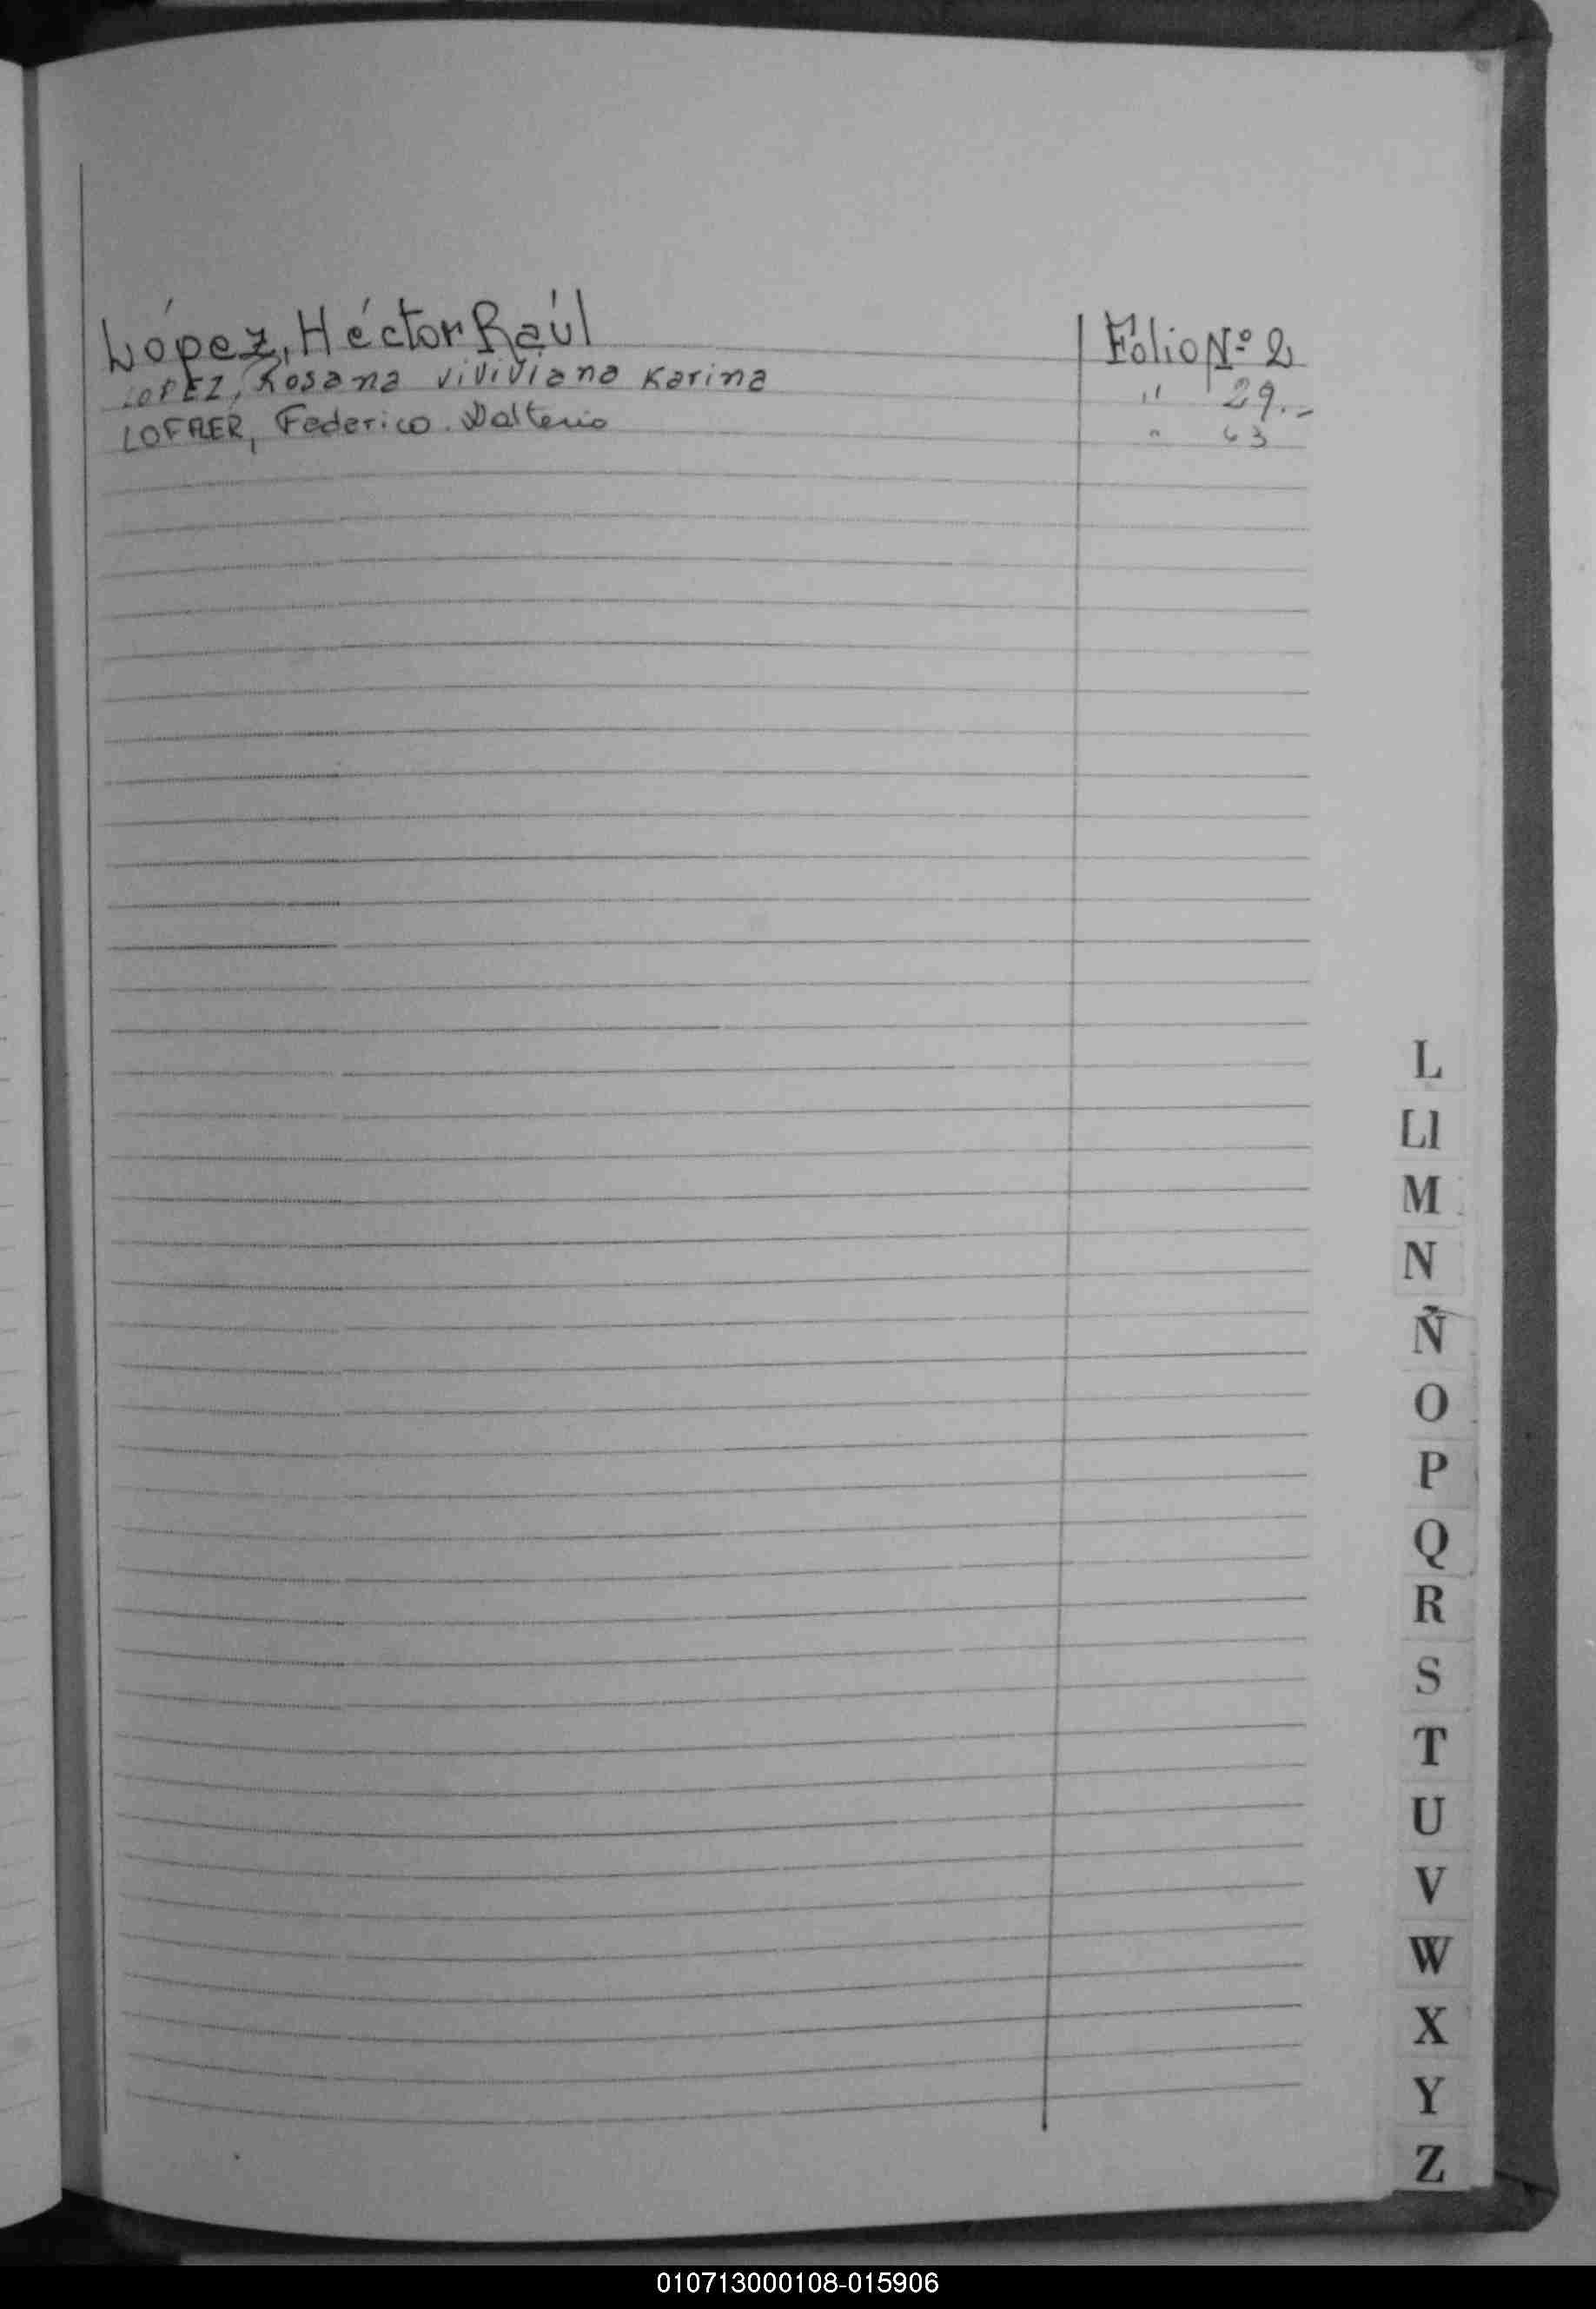 López, Héctor Raúl Folio Nº 2
LOPEZ, Rosana viviviana Karina " 29.-
LOFLER, Federico. Dalterio " 63
L
Ll
M
N
Ñ
O
P
Q
R
S
T
U
V
W
X
Y
Z
010713000108-015906